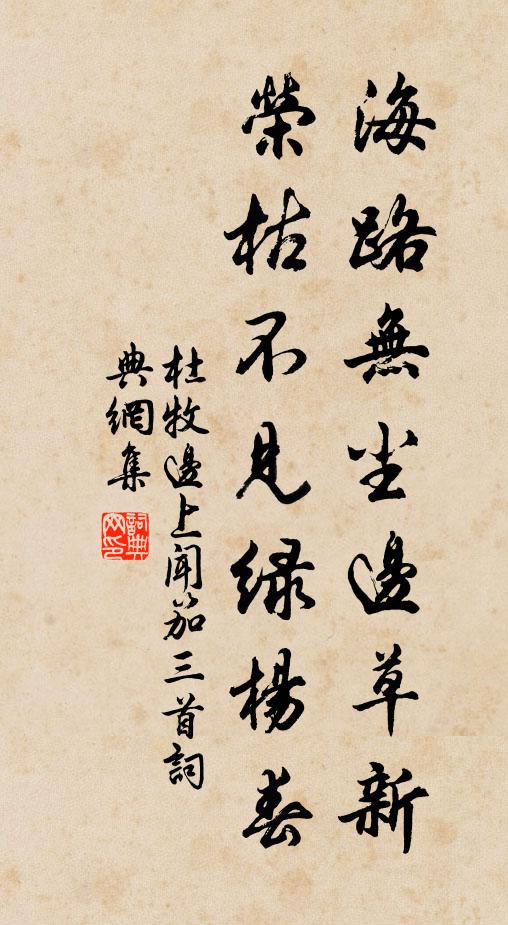 海路無尘邊草新
榮枯不見绿楊春
杜牧邊上闻笳三首詞
典網集
詞典
网印